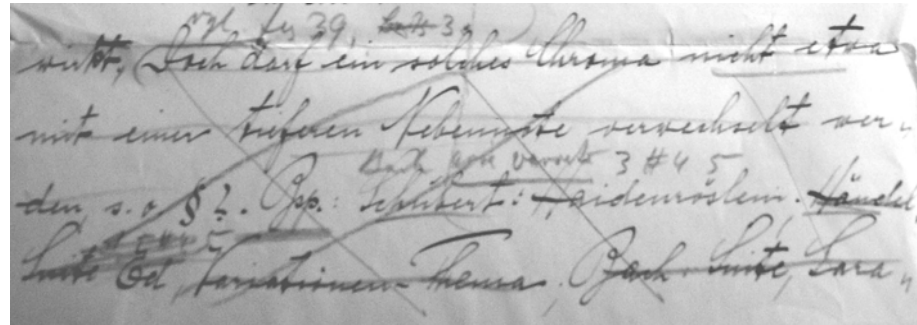 vgl. fig 39, 3
wirkt. Doch darf ein solches Chroma nicht etwa
mit einer tieferen Nebennote verwechselt wer-
den, s. o. § ?. Bsp.: Schubert: Haidenröslein. Händel
3 #4 5
Suite Ed Variationen-Thema. Bach Suite, Sara-